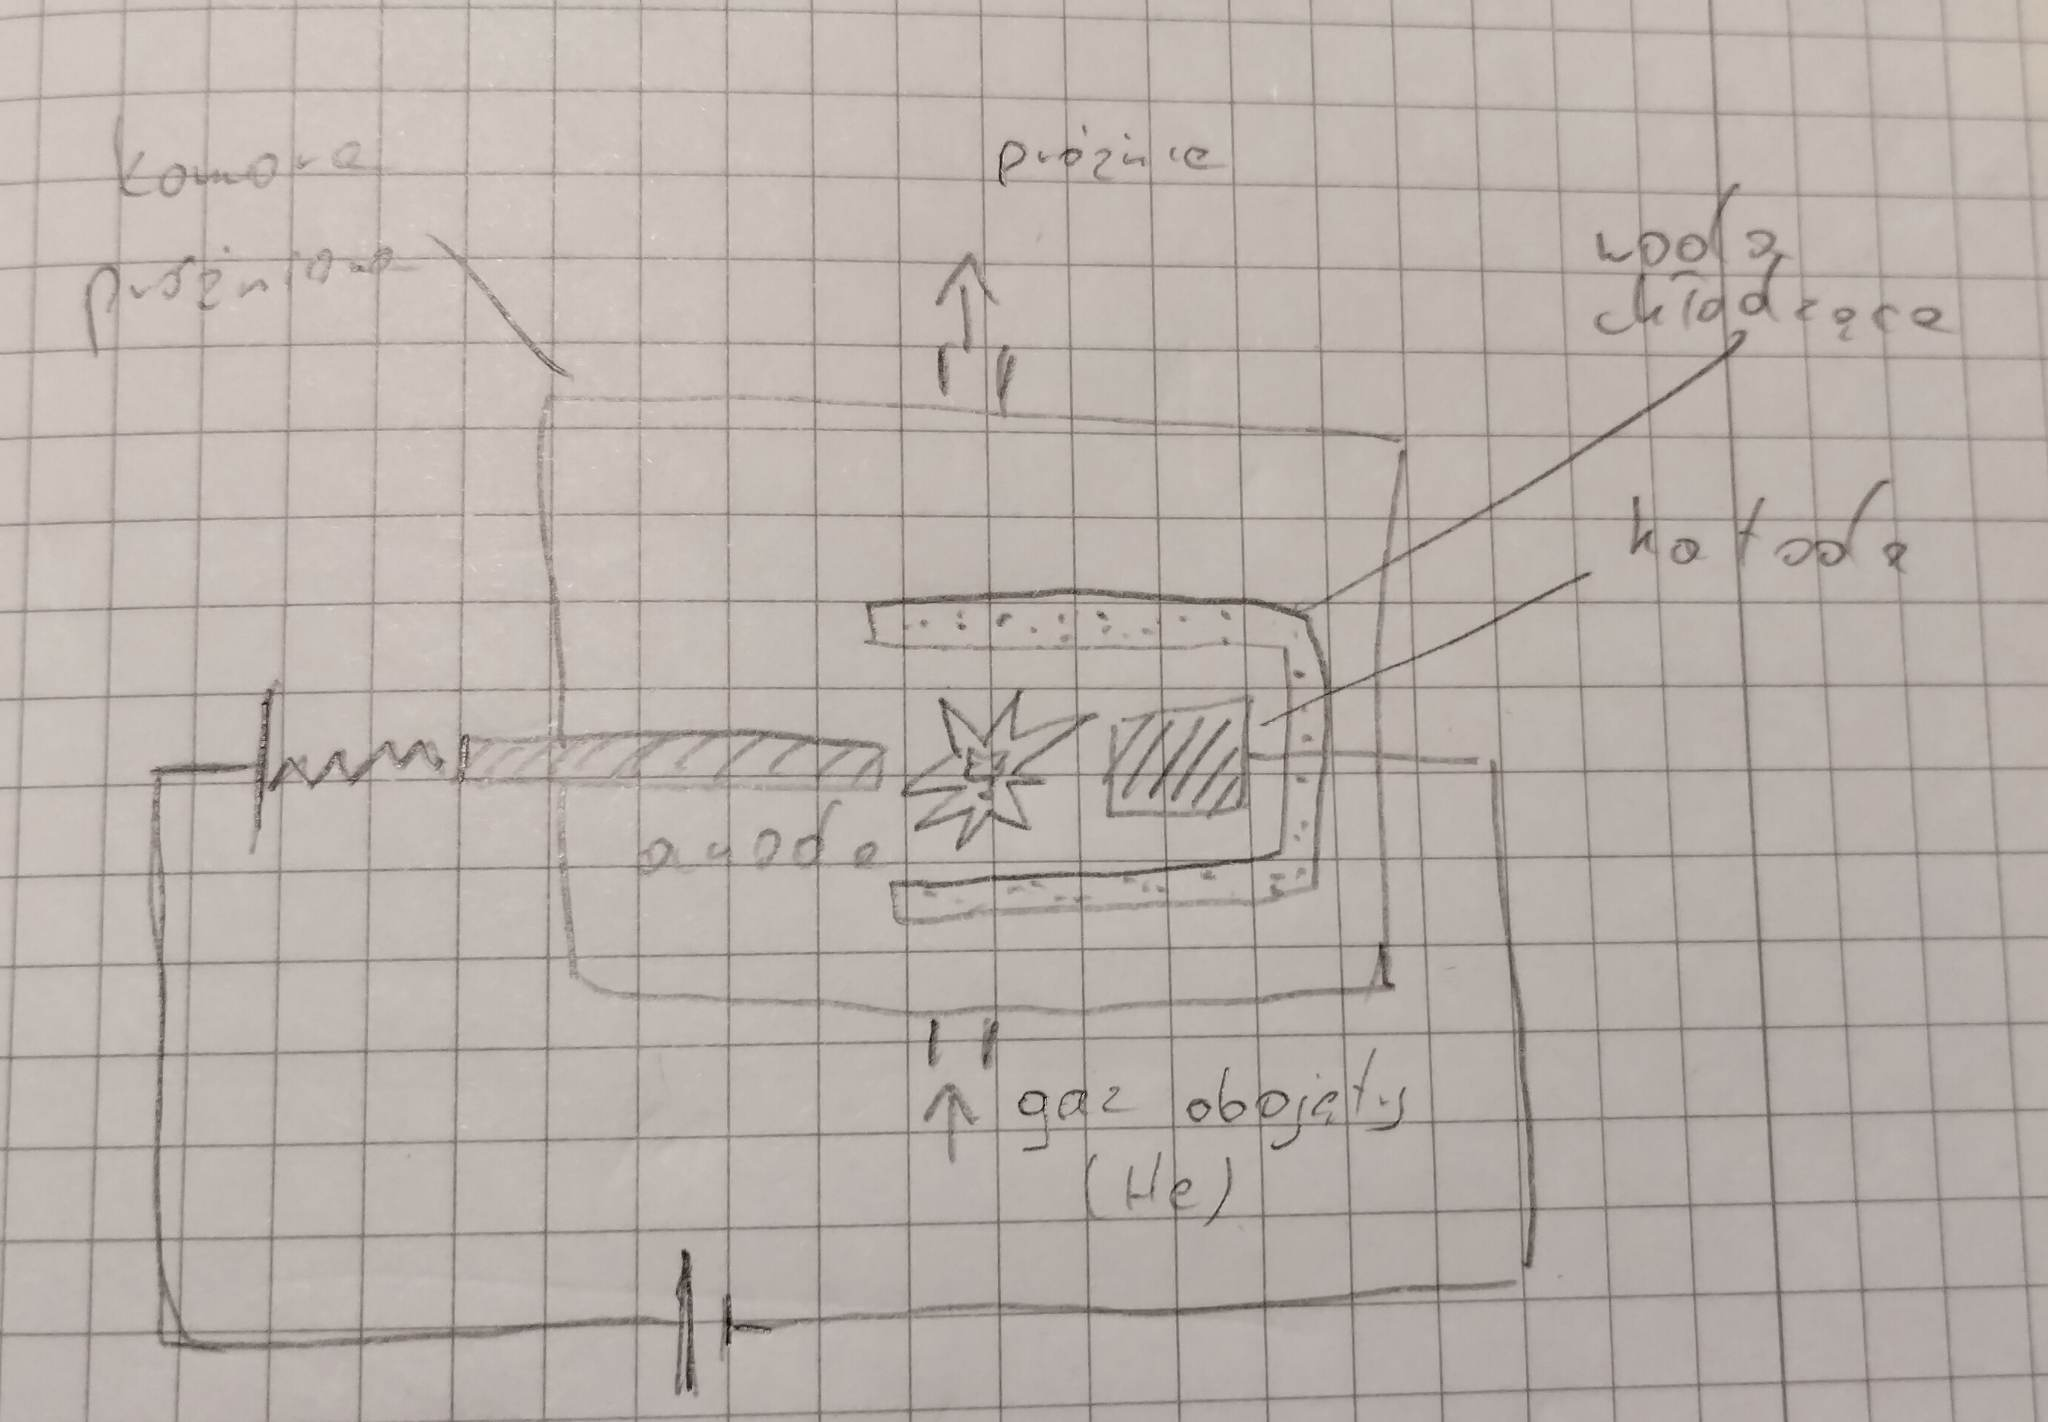 komora
próżniowa
próżnia
woda
chłodząca
katoda
anoda
gaz obojęty
(He)